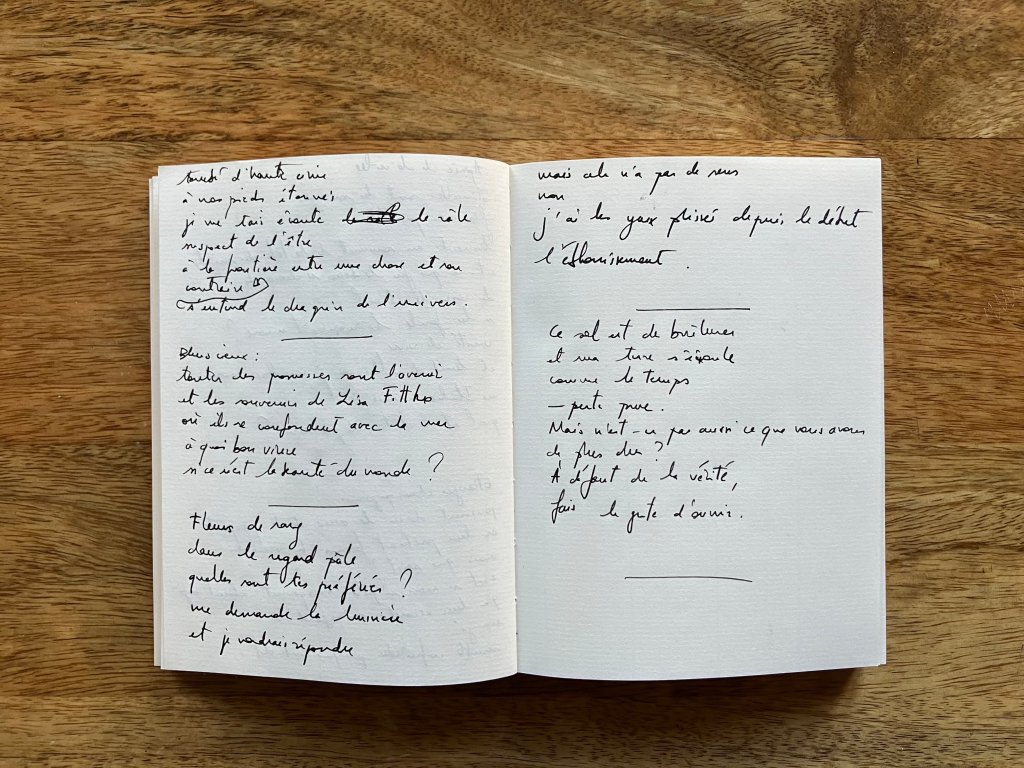 tombé d'haute cime
à nos pieds étonnés
je me tais écoute le râle
suspect de l'être
à la frontière entre une chose et son
contraire
s'entend le chagrin de l'univers.
Plus vieux :
toutes des promesses sont l'avenir
et les souvenirs de Lisa Fittko
où ils se confondent avec la mer
à quoi bon vivre
si ce n'est la beauté du monde ?
Fleurs de sang
dans le regard pâle
quelles sont tes préférées ?
me demande la lumière
et je voudrais répondre
mais cela n'a pas de sens
non
j'ai les yeux plissés depuis le début
l'éblouissement.
Ce sol est de brûlures
et ma terre s'écoule
comme le temps
— perte pure.
Mais n'est-ce pas aussi ce que nous avons
de plus ?
À défaut de la vérité,
fais le geste d'ouvrir.